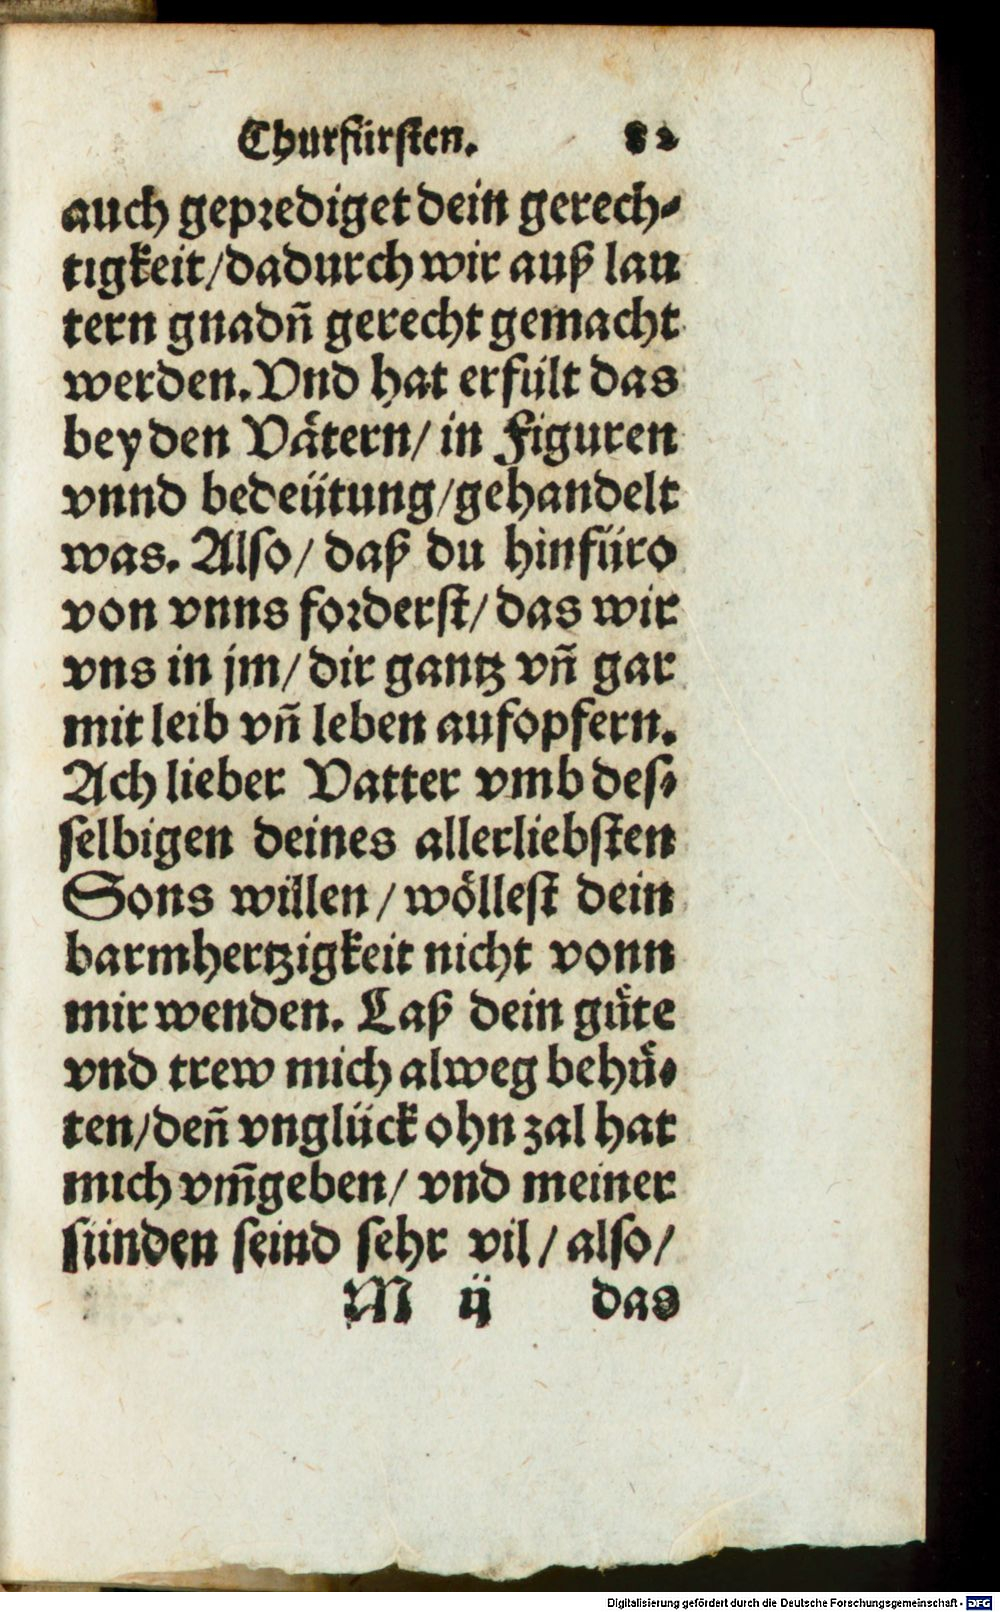 Churfürsten. 82
auch geprediget dein gerech⸗
tigkeit/dadurch wir auß lau
tern gnadñ gerecht gemacht
werden. Vnd hat erfült das
bey den Vaͤtern/ in Figuren
vnnd bedeütung/gehandelt
was. Also/ daß du hinfüro
von vnns forderst/ das wir
vns in jm/ dir gantz vñ gar
mit leib vñ leben aufopfern.
Ach lieber Vatter vmb des⸗
selbigen deines allerliebsten
Sons willen/ woͤllest dein
barmhertzigkeit nicht vonn
mir wenden. Laß dein guͤte
vnd trew mich alweg behuͤ⸗
ten/deñ vnglück ohn zal hat
mich vm̃geben/ vnd meiner
sünden seind sehr vil/ also/
M ij das
Digitalisierung gefördert durch die Deutsche Forschungsgemeinschaft - DFG